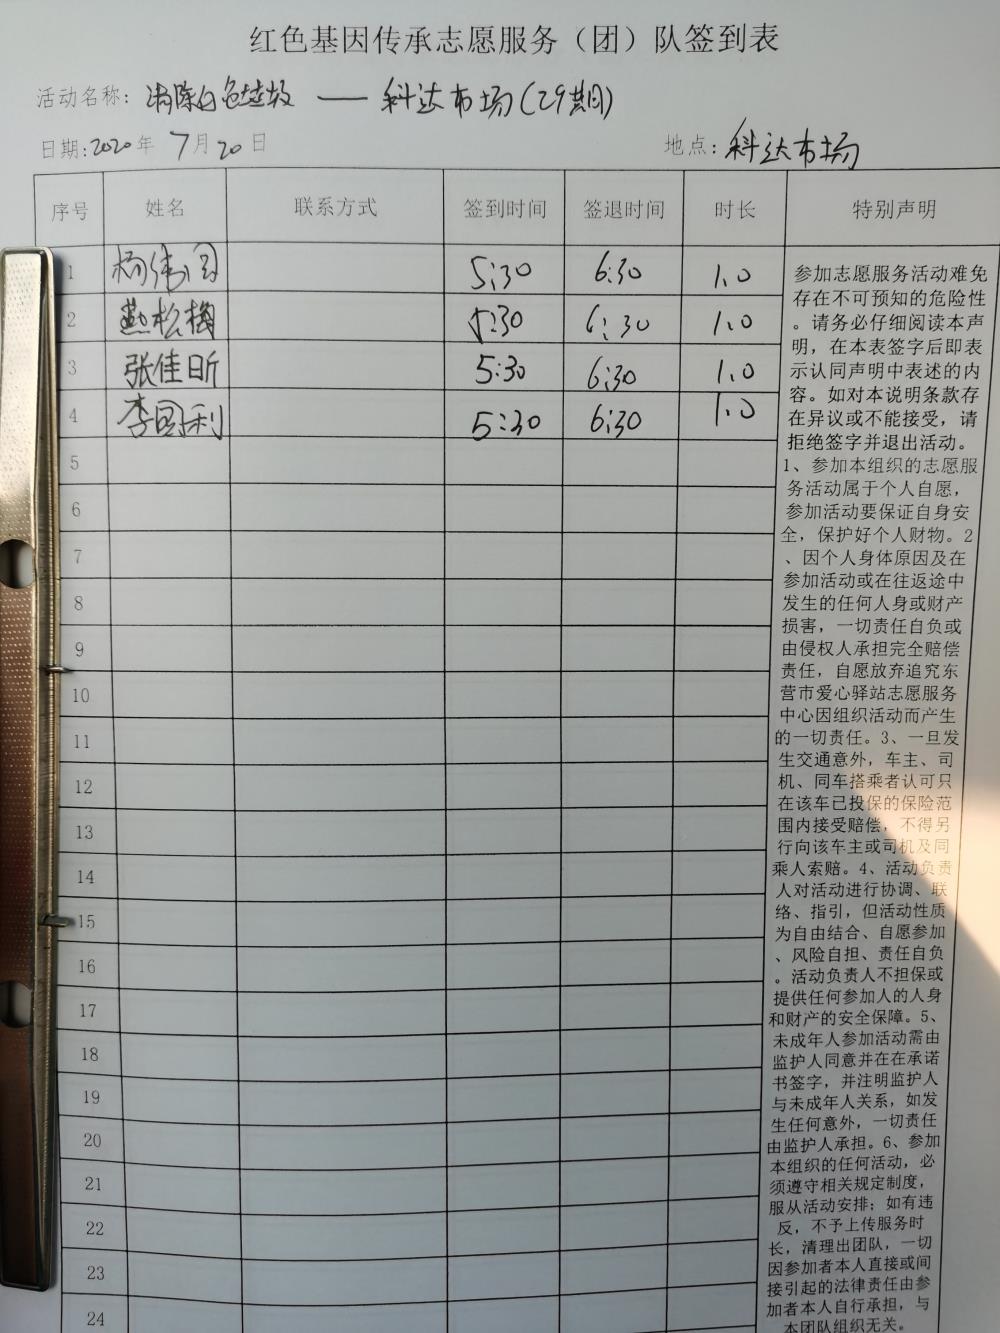 红色基因传承志愿服务（团）队签到表
活动名称：清除白色垃圾 —— 科达市场(29期)
日期：2020年 7月20日 地点：科达市场
序号 姓名 联系方式 签到时间 签退时间 时长 特别声明
1 杨伟国 5:30 6:30 1.0
2 燕松梅 5:30 6:30 1.0
3 张佳昕 5:30 6:30 1.0
4 李国利 5:30 6:30 1.0
5
6
7
8
9
10
11
12
13
14
15
16
17
18
19
20
21
22
23
24
参加志愿服务活动难免
存在不可预知的危险性
。请务必仔细阅读本声
明，在本表签字后即表
示认同声明中表述的内
容。如对本说明条款存
在异议或不能接受，请
拒绝签字并退出活动。
1、参加本组织的志愿服
务活动属于个人自愿，
参加活动要保证自身安
全，保护好个人财物。2
、因个人身体原因及在
参加活动或在往返途中
发生的任何人身或财产
损害，一切责任自负或
由侵权人承担完全赔偿
责任，自愿放弃追究东
营市爱心驿站志愿服务
中心因组织活动而产生
的一切责任。3、一旦发
生交通意外，车主、司
机、同车搭乘者认可只
在该车已投保的保险范
围内接受赔偿，不得另
行向该车主或司机及同
乘人索赔。4、活动负责
人对活动进行协调、联
络、指引，但活动性质
为自由结合、自愿参加
、风险自担、责任自负
。活动负责人不担保或
提供任何参加人的人身
和财产的安全保障。5、
未成年人参加活动需由
监护人同意并在在承诺
书签字，并注明监护人
与未成年人关系，如发
生任何意外，一切责任
由监护人承担。6、参加
本组织的任何活动，必
须遵守相关规定制度，
服从活动安排；如有违
反，不予上传服务时
长，清理出团队，一切
因参加者本人直接或间
接引起的法律责任由参
加者本人自行承担，与
本团队组织无关。